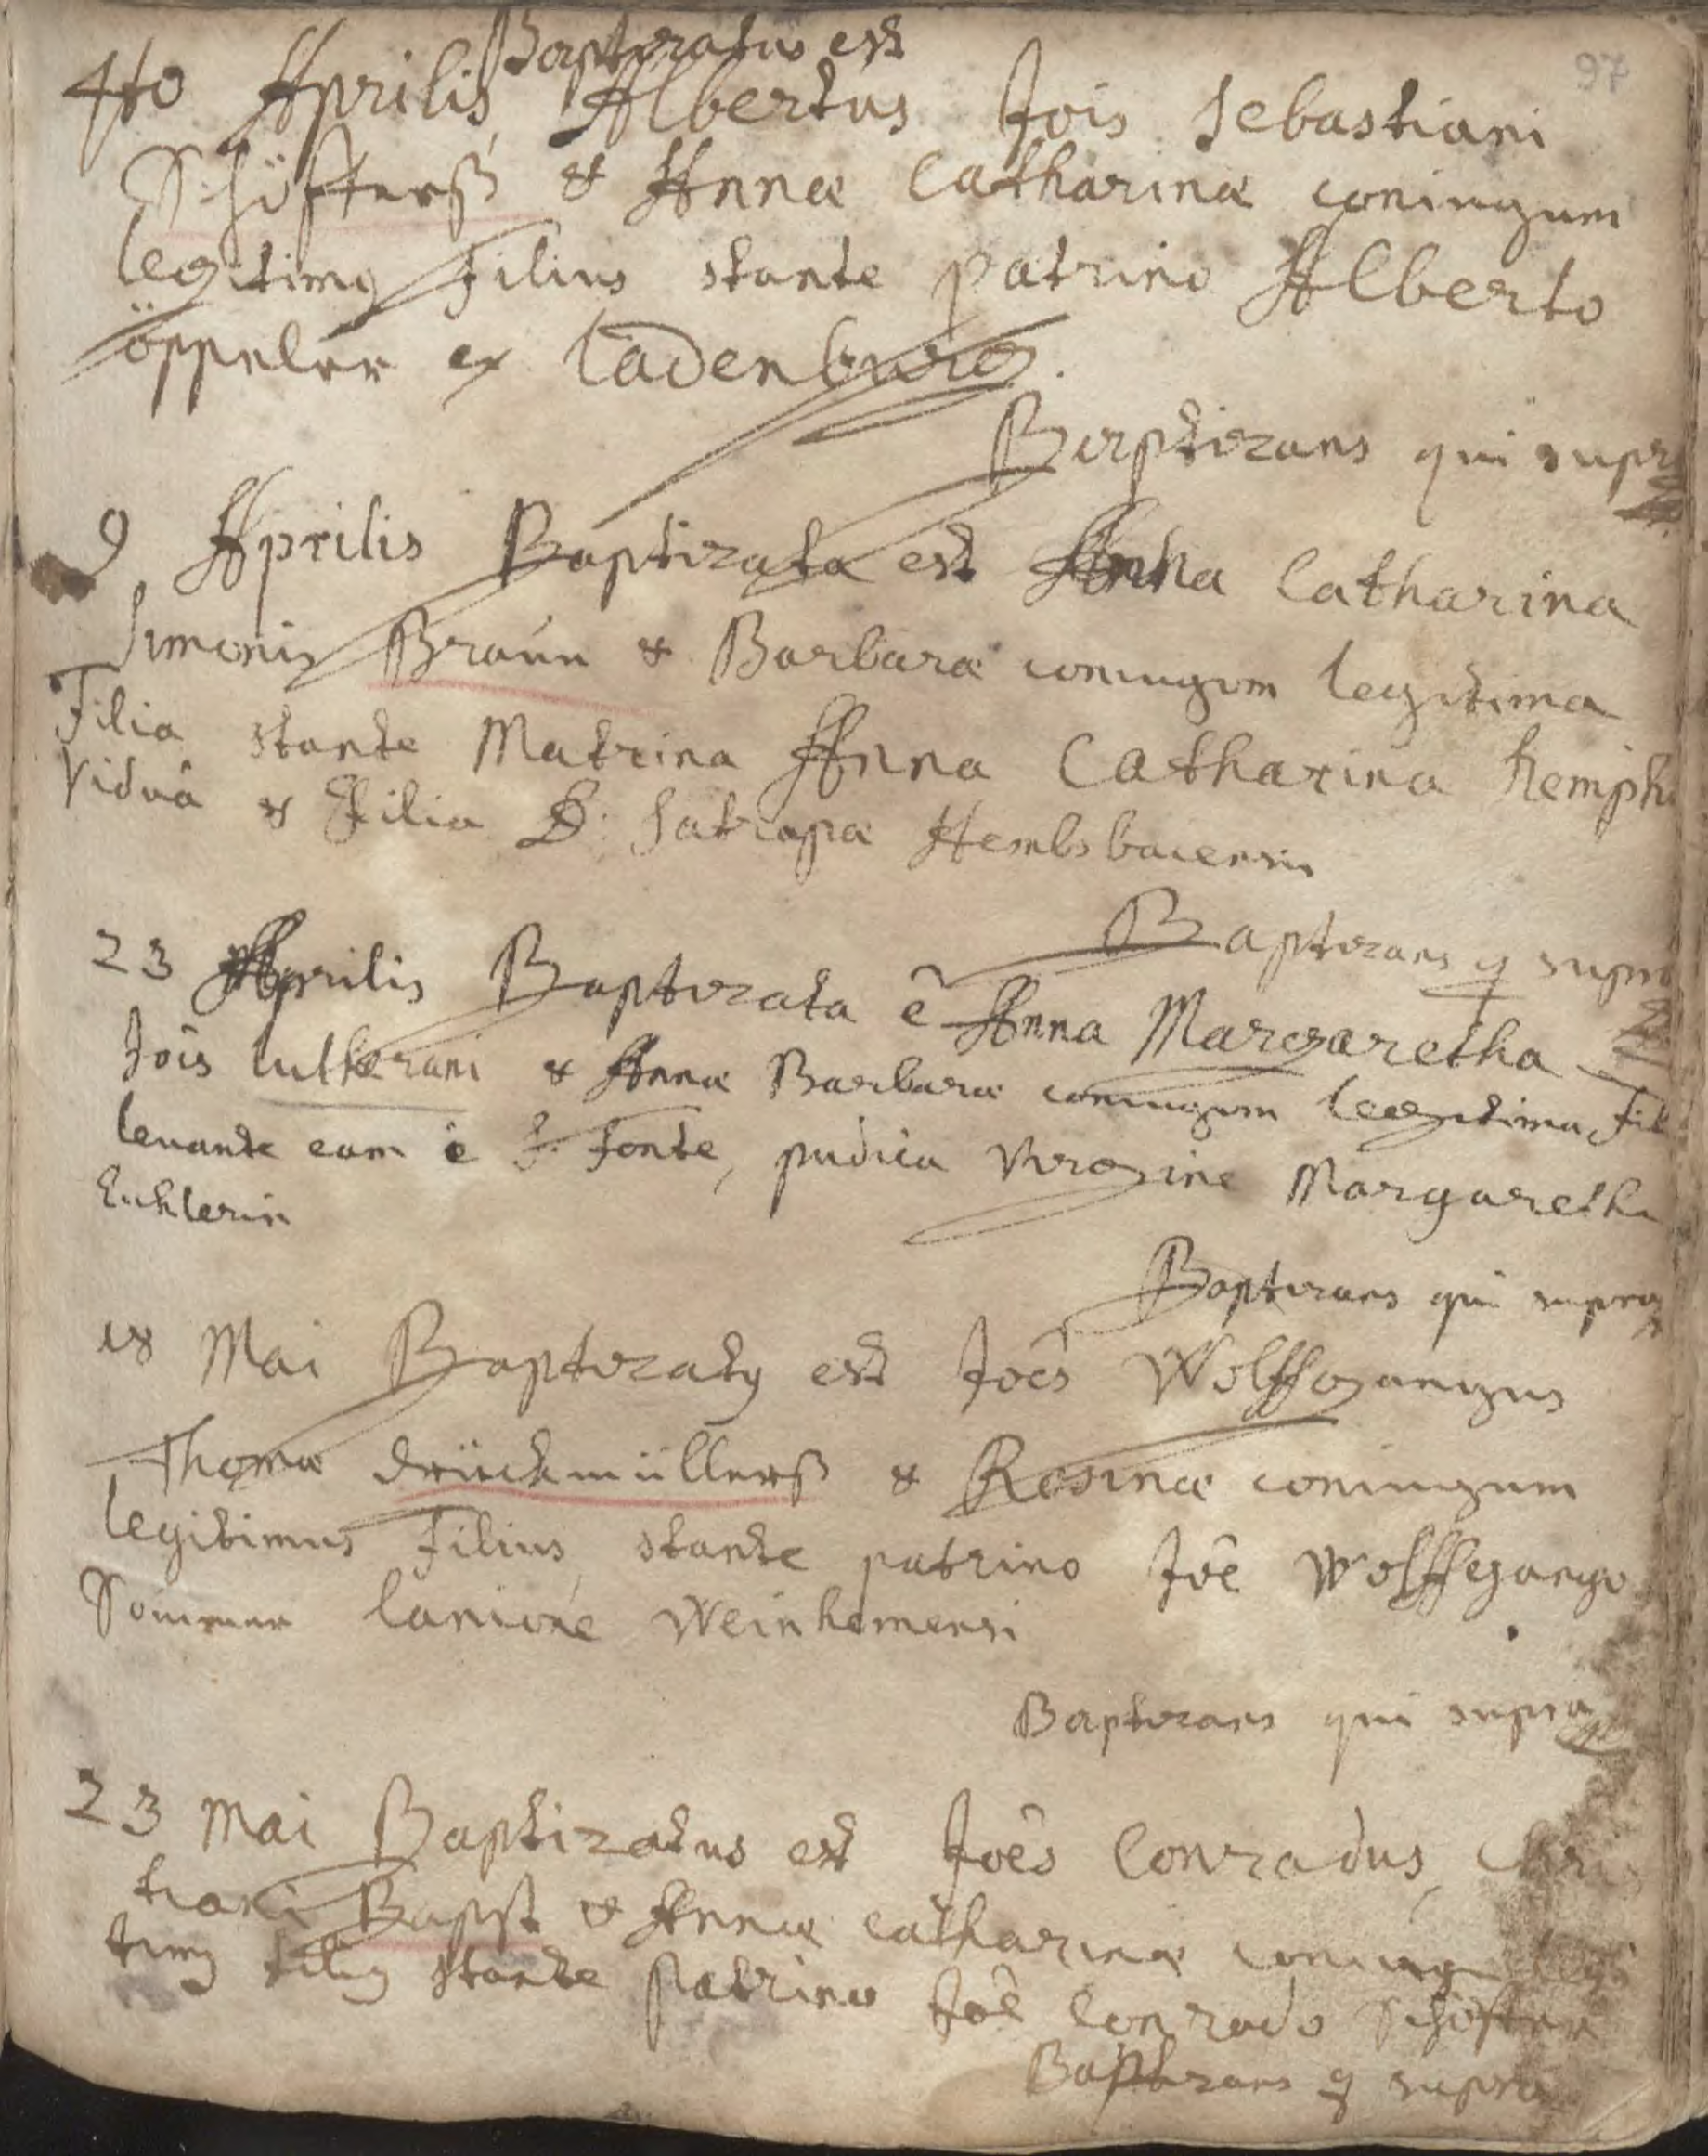 97
Baptizatus est
4to Aprilis Albertus Jois Sebastiani
Schöfferß & Annæ Catharinæ coniugum
legitimq Filius stante patrino Alberto
öppeler ex Ladenburg.
Baptizans qui supra
9 Aprilis Baptizata est Anna Catharina
Simonis Braún & Barbaræ coniugum legitima
Filia stante Matrina Anna Catharina
Viduâ & Filia D: Satrapæ Hembsbacensis
Baptizans q supra
23 Aprilis Baptizata ē Anna Margaretha
Jôis lutherani & Annæ Barbaræ coniugum legitima Fil
leuante eam è S. Fonte, pudica Virgine Margaretha
Baptizans qui supra
18 Mai Baptizatq est Joês Wolffgangus
Thomæ drückmüllerß & Rosinæ coniugum
legitimus Filius stante patrino Joê Wolffgango
Sommer lanione Weinhemensi
Baptizans qui supra
23 Mai Baptizatus est Joês Conradus, Chris
tiani Bapst & Annæ catharinæ coniug legi
timq filiq stante patrino Joê Conrado Schöffer
Baptizans q supra